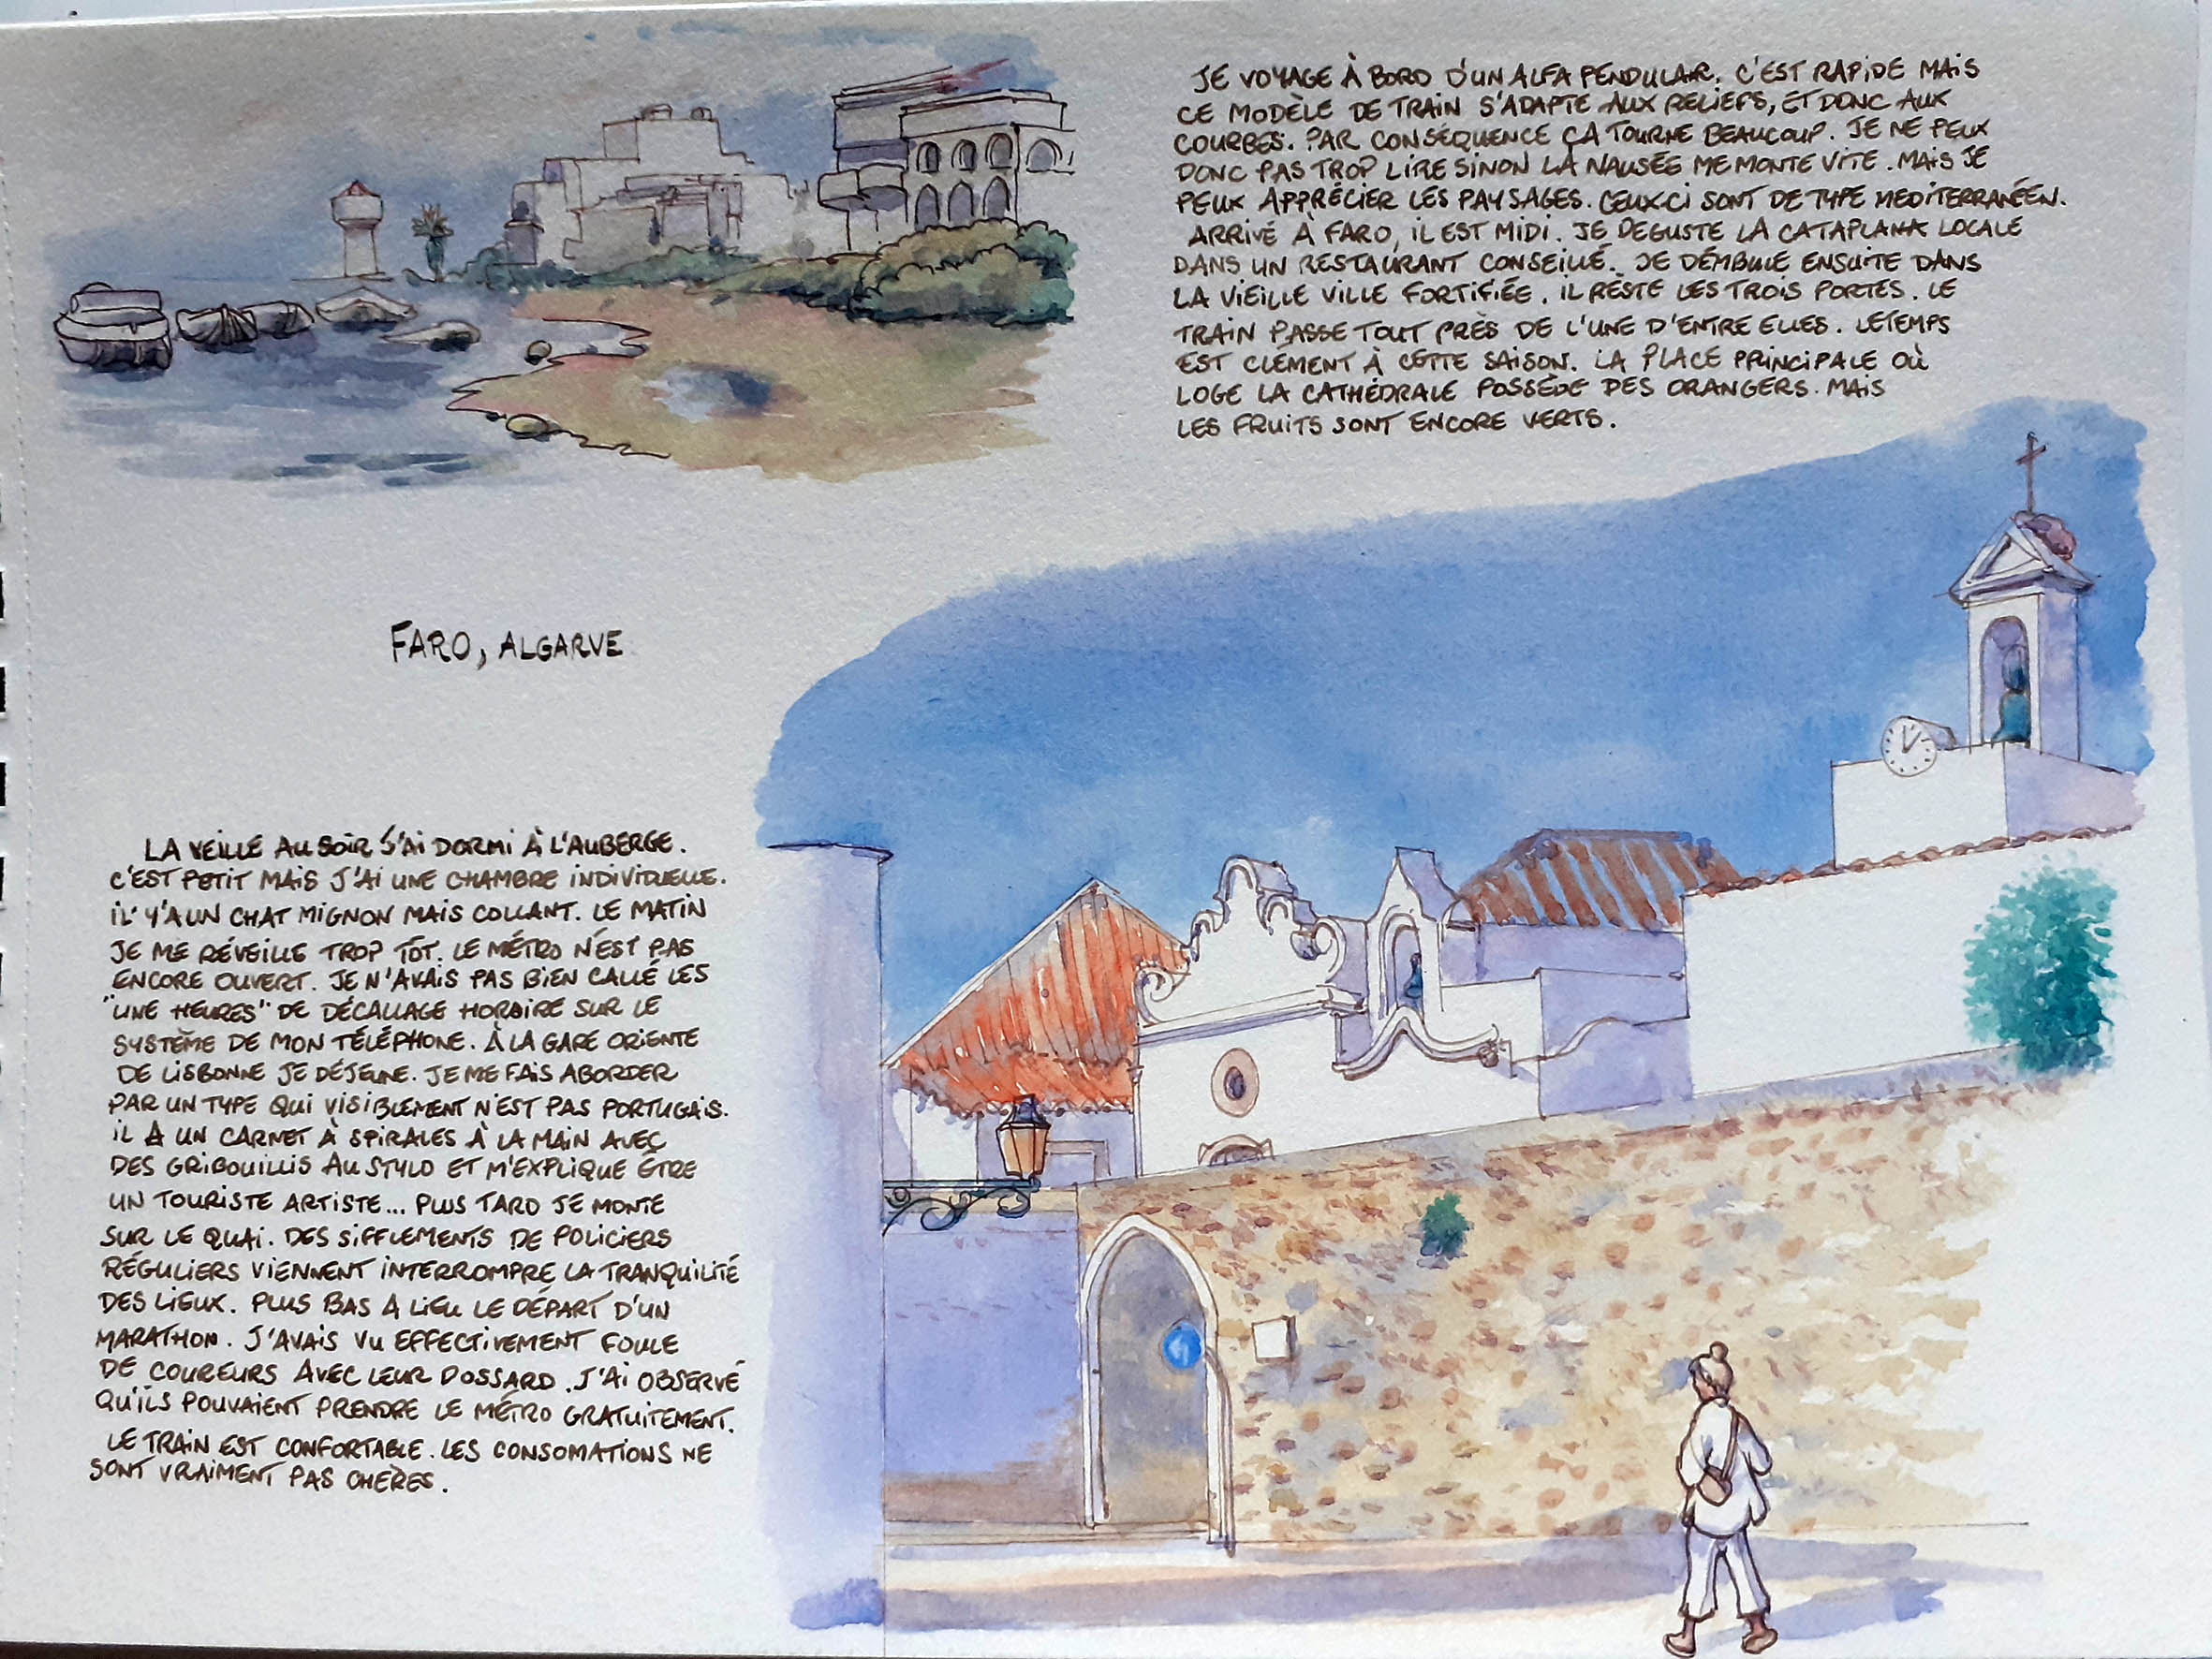 JE VOYAGE À BORD D'UN ALFA PENDULAR. C'EST RAPIDE MAIS
CE MODÈLE DE TRAIN S'ADAPTE AUX RELIEFS, ET DONC AUX
COURBES. PAR CONSÉQUENCE ÇA TOURNE BEAUCOUP. JE NE PEUX
DONC PAS TROP LIRE SINON LA NAUSÉE ME MONTE VITE. MAIS JE
PEUX APPRÉCIER LES PAYSAGES. CEUX-CI SONT DE TYPE MEDITERRANÉEN.
ARRIVÉ À FARO, IL EST MIDI. JE DEGUSTE LA CATAPLANA LOCALE
DANS UN RESTAURANT CONSEILLÉ. JE DÉMBULE ENSUITE DANS
LA VIEILLE VILLE FORTIFIÉE. IL RESTE LES TROIS PORTES. LE
TRAIN PASSE TOUT PRÈS DE L'UNE D'ENTRE ELLES. LE TEMPS
EST CLÉMENT À CETTE SAISON. LA PLACE PRINCIPALE OÙ
LOGE LA CATHÉDRALE POSSÈDE DES ORANGERS. MAIS
LES FRUITS SONT ENCORE VERTS.
FARO, ALGARVE
LA VEILLE AU SOIR J'AI DORMI À L'AUBERGE.
C'EST PETIT MAIS J'AI UNE CHAMBRE INDIVIDUELLE.
IL Y'A UN CHAT MIGNON MAIS COLLANT. LE MATIN
JE ME RÉVEILLE TROP TÔT. LE MÉTRO N'EST PAS
ENCORE OUVERT. JE N'AVAIS PAS BIEN CALLÉ LES
"UNE HEURES" DE DÉCALLAGE HORAIRE SUR LE
SYSTÈME DE MON TÉLÉPHONE. À LA GARE ORIENTE
DE LISBONNE JE DÉJEUNE. JE ME FAIS ABORDER
PAR UN TYPE QUI VISIBLEMENT N'EST PAS PORTUGAIS.
IL A UN CARNET À SPIRALES À LA MAIN AVEC
DES GRIBOUILLIS AU STYLO ET M'EXPLIQUE ÊTRE
UN TOURISTE ARTISTE... PLUS TARD JE MONTE
SUR LE QUAI. DES SIFFLEMENTS DE POLICIERS
RÉGULIERS VIENNENT INTERROMPRE LA TRANQUILITÉ
DES LIEUX. PLUS BAS A LIEU LE DÉPART D'UN
MARATHON. J'AVAIS VU EFFECTIVEMENT FOULE
DE COUREURS AVEC LEUR DOSSARD. J'AI OBSERVÉ
QU'ILS POUVAIENT PRENDRE LE MÉTRO GRATUITEMENT.
LE TRAIN EST CONFORTABLE. LES CONSOMATIONS NE
SONT VRAIMENT PAS CHÈRES.